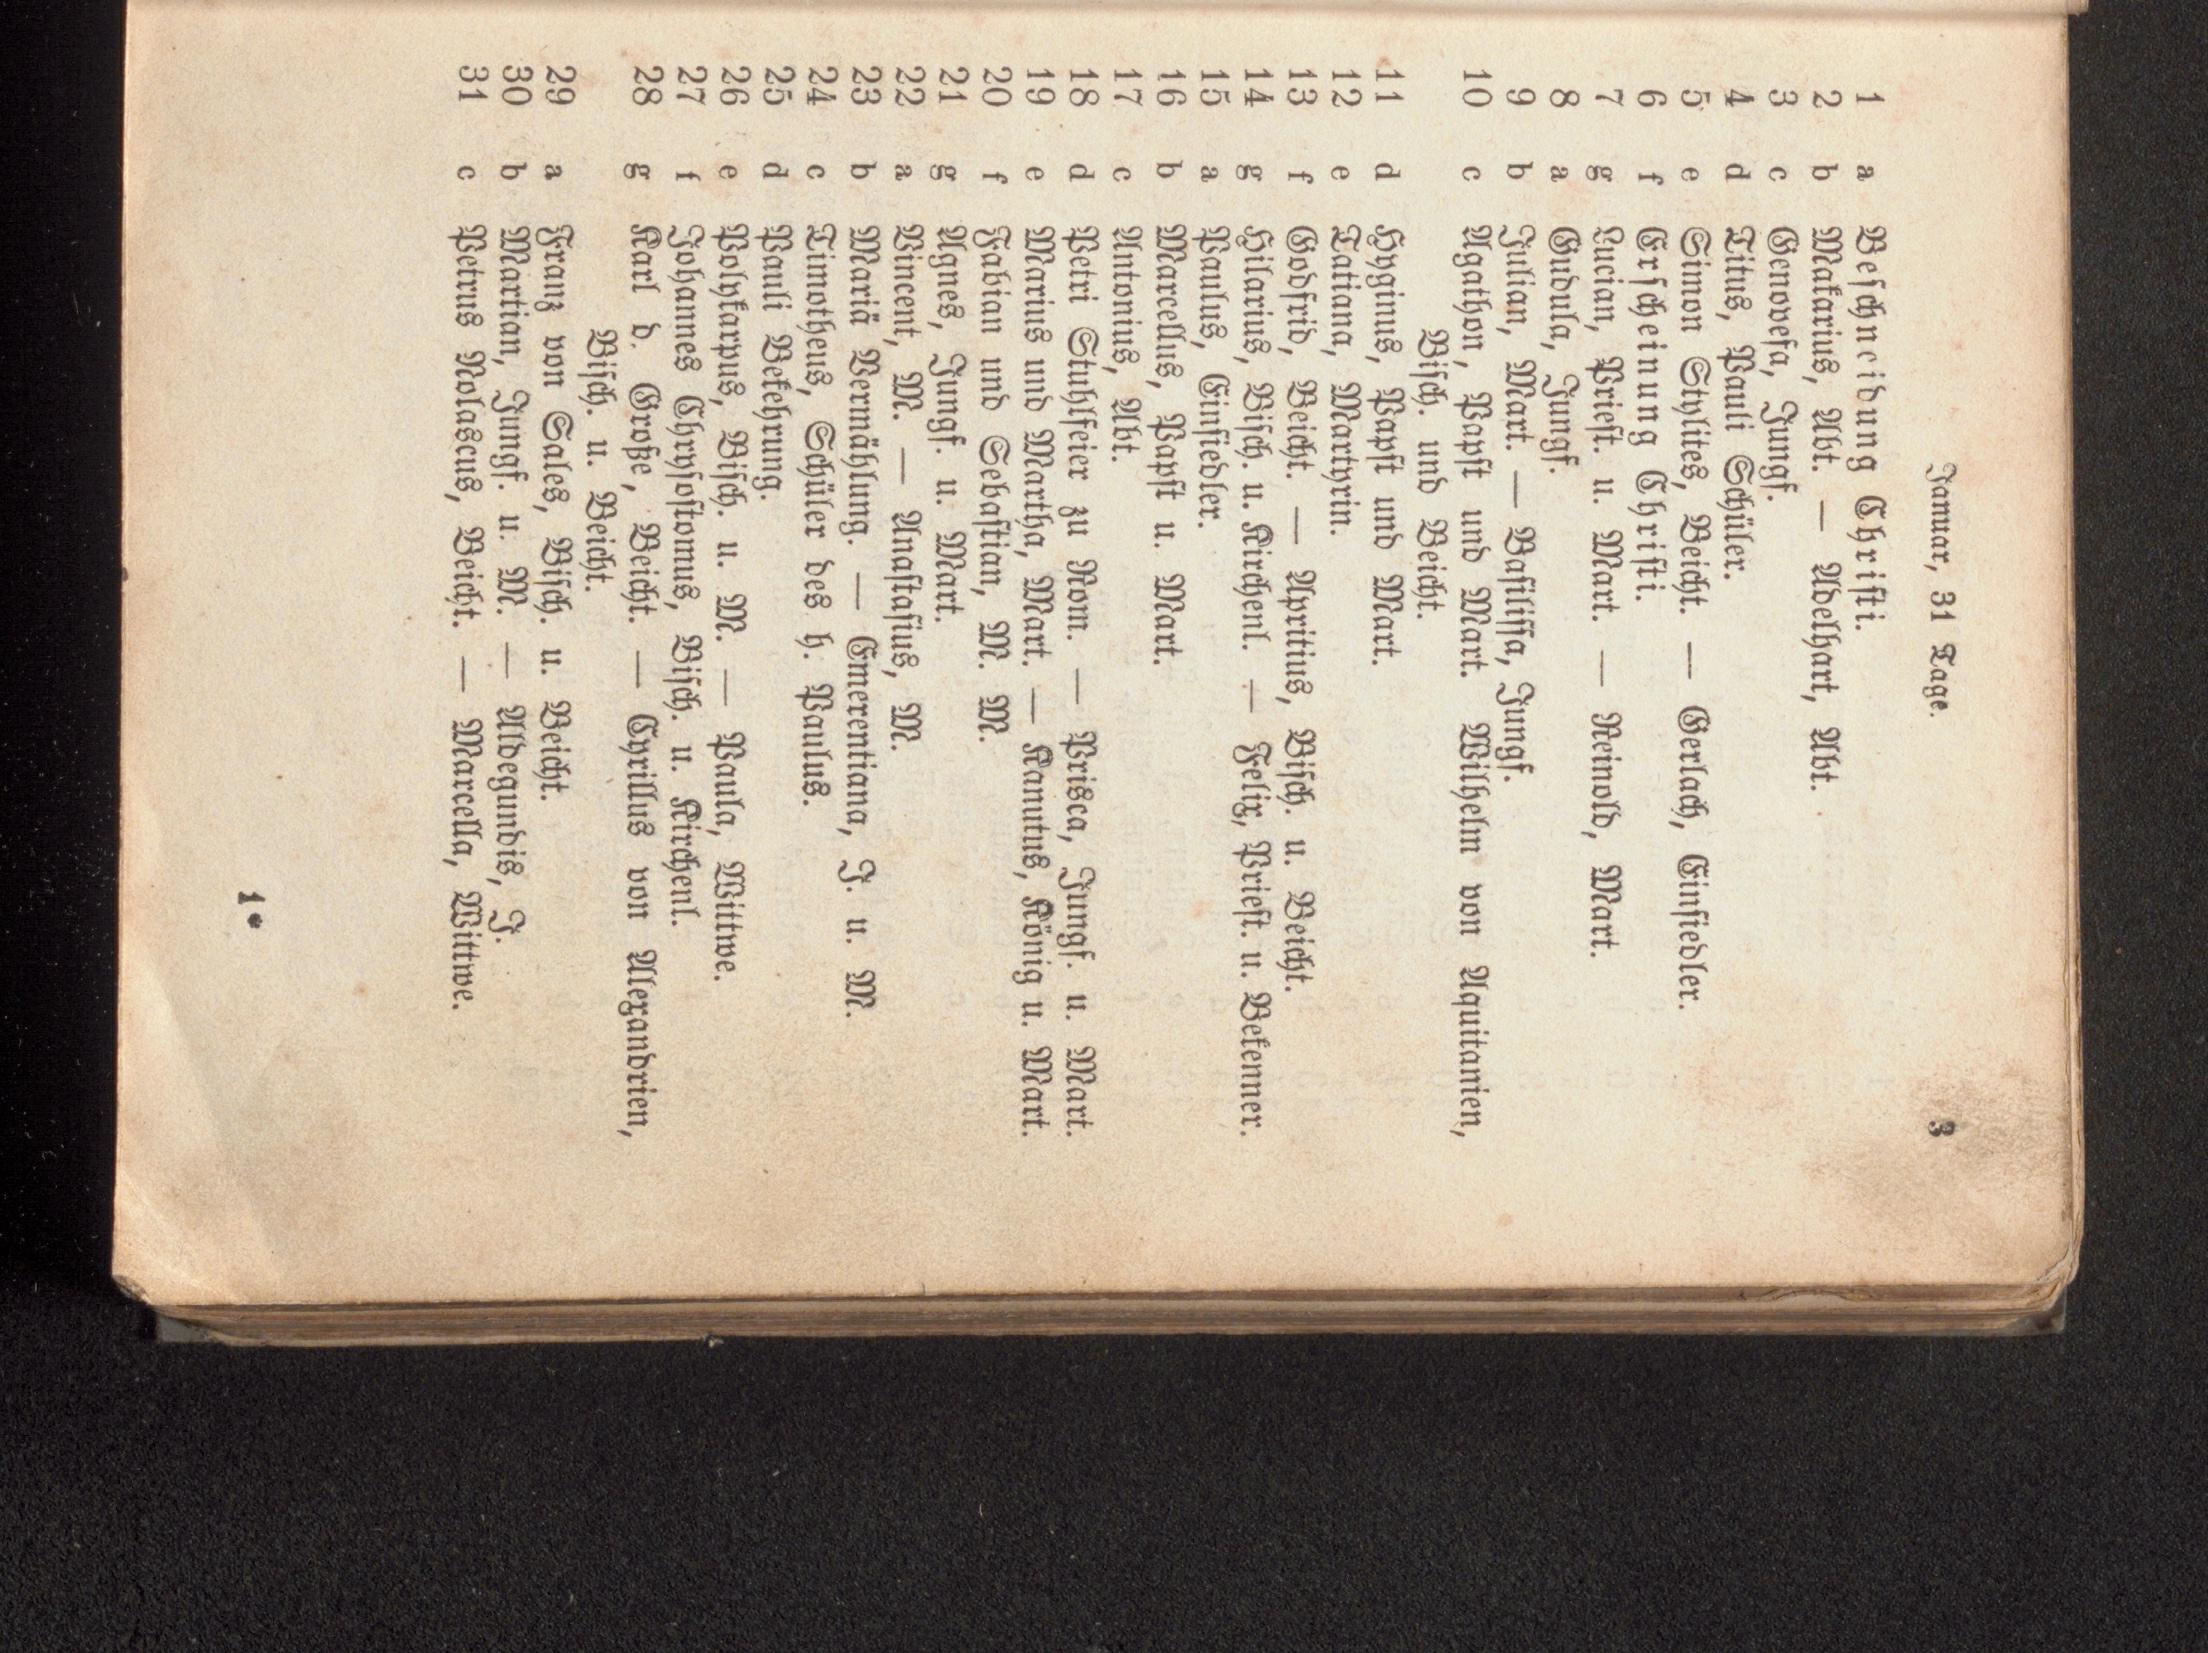 Januar, 31 Tage. 3
1 a Beschneidung Christi.
2 b Makarius, Abt. — Adelhart, Abt.
3 c Genovefa, Jungf.
4 d Titus, Pauli Schüler.
5 e Simon Stylites, Beicht. — Gerlach, Einsiedler.
6 f Erscheinung Christi.
7 g Lucian, Priest. u. Mart. — Reinold, Mart.
8 a Gudula, Jungf.
9 b Julian, Mart. — Basilissa, Jungf.
10 c Agathon, Papst und Mart. Wilhelm von Aquitanien,
Bisch. und Beicht.
11 d Hyginus, Papst und Mart.
12 e Tatiana, Martyrin.
13 f Godfrid, Beicht. — Apritius, Bisch. u. Beicht.
14 g Hilarius, Bisch. u. Kirchenl. — Felix, Priest. u. Bekenner.
15 a Paulus, Einsiedler.
16 b Marcellus, Papst u. Mart.
17 c Antonius, Abt.
18 d Petri Stuhlfeier zu Rom. — Prisca, Jungf. u. Mart.
19 e Marius und Martha, Mart. — Kanutus, König u. Mart.
20 f Fabian und Sebastian, M. M.
21 g Agnes, Jungf. u. Mart.
22 a Vincent, M. — Anastasius, M.
23 b Mariä Vermählung. — Emerentiana, J. u. M.
24 c Timotheus, Schüler des h. Paulus.
25 d Pauli Bekehrung.
26 e Polykarpus, Bisch. u. M. — Paula, Wittwe.
27 f Johannes Chrysostomus, Bisch. u. Kirchenl.
28 g Karl d. Große, Beicht. — Cyrillus von Alexandrien,
Bisch. u. Beicht.
29 a Franz von Sales, Bisch. u. Beicht.
30 b Martian, Jungf. u. M. — Aldegundis, J.
31 c Petrus Nolascus, Beicht. — Marcella, Wittwe.
1*